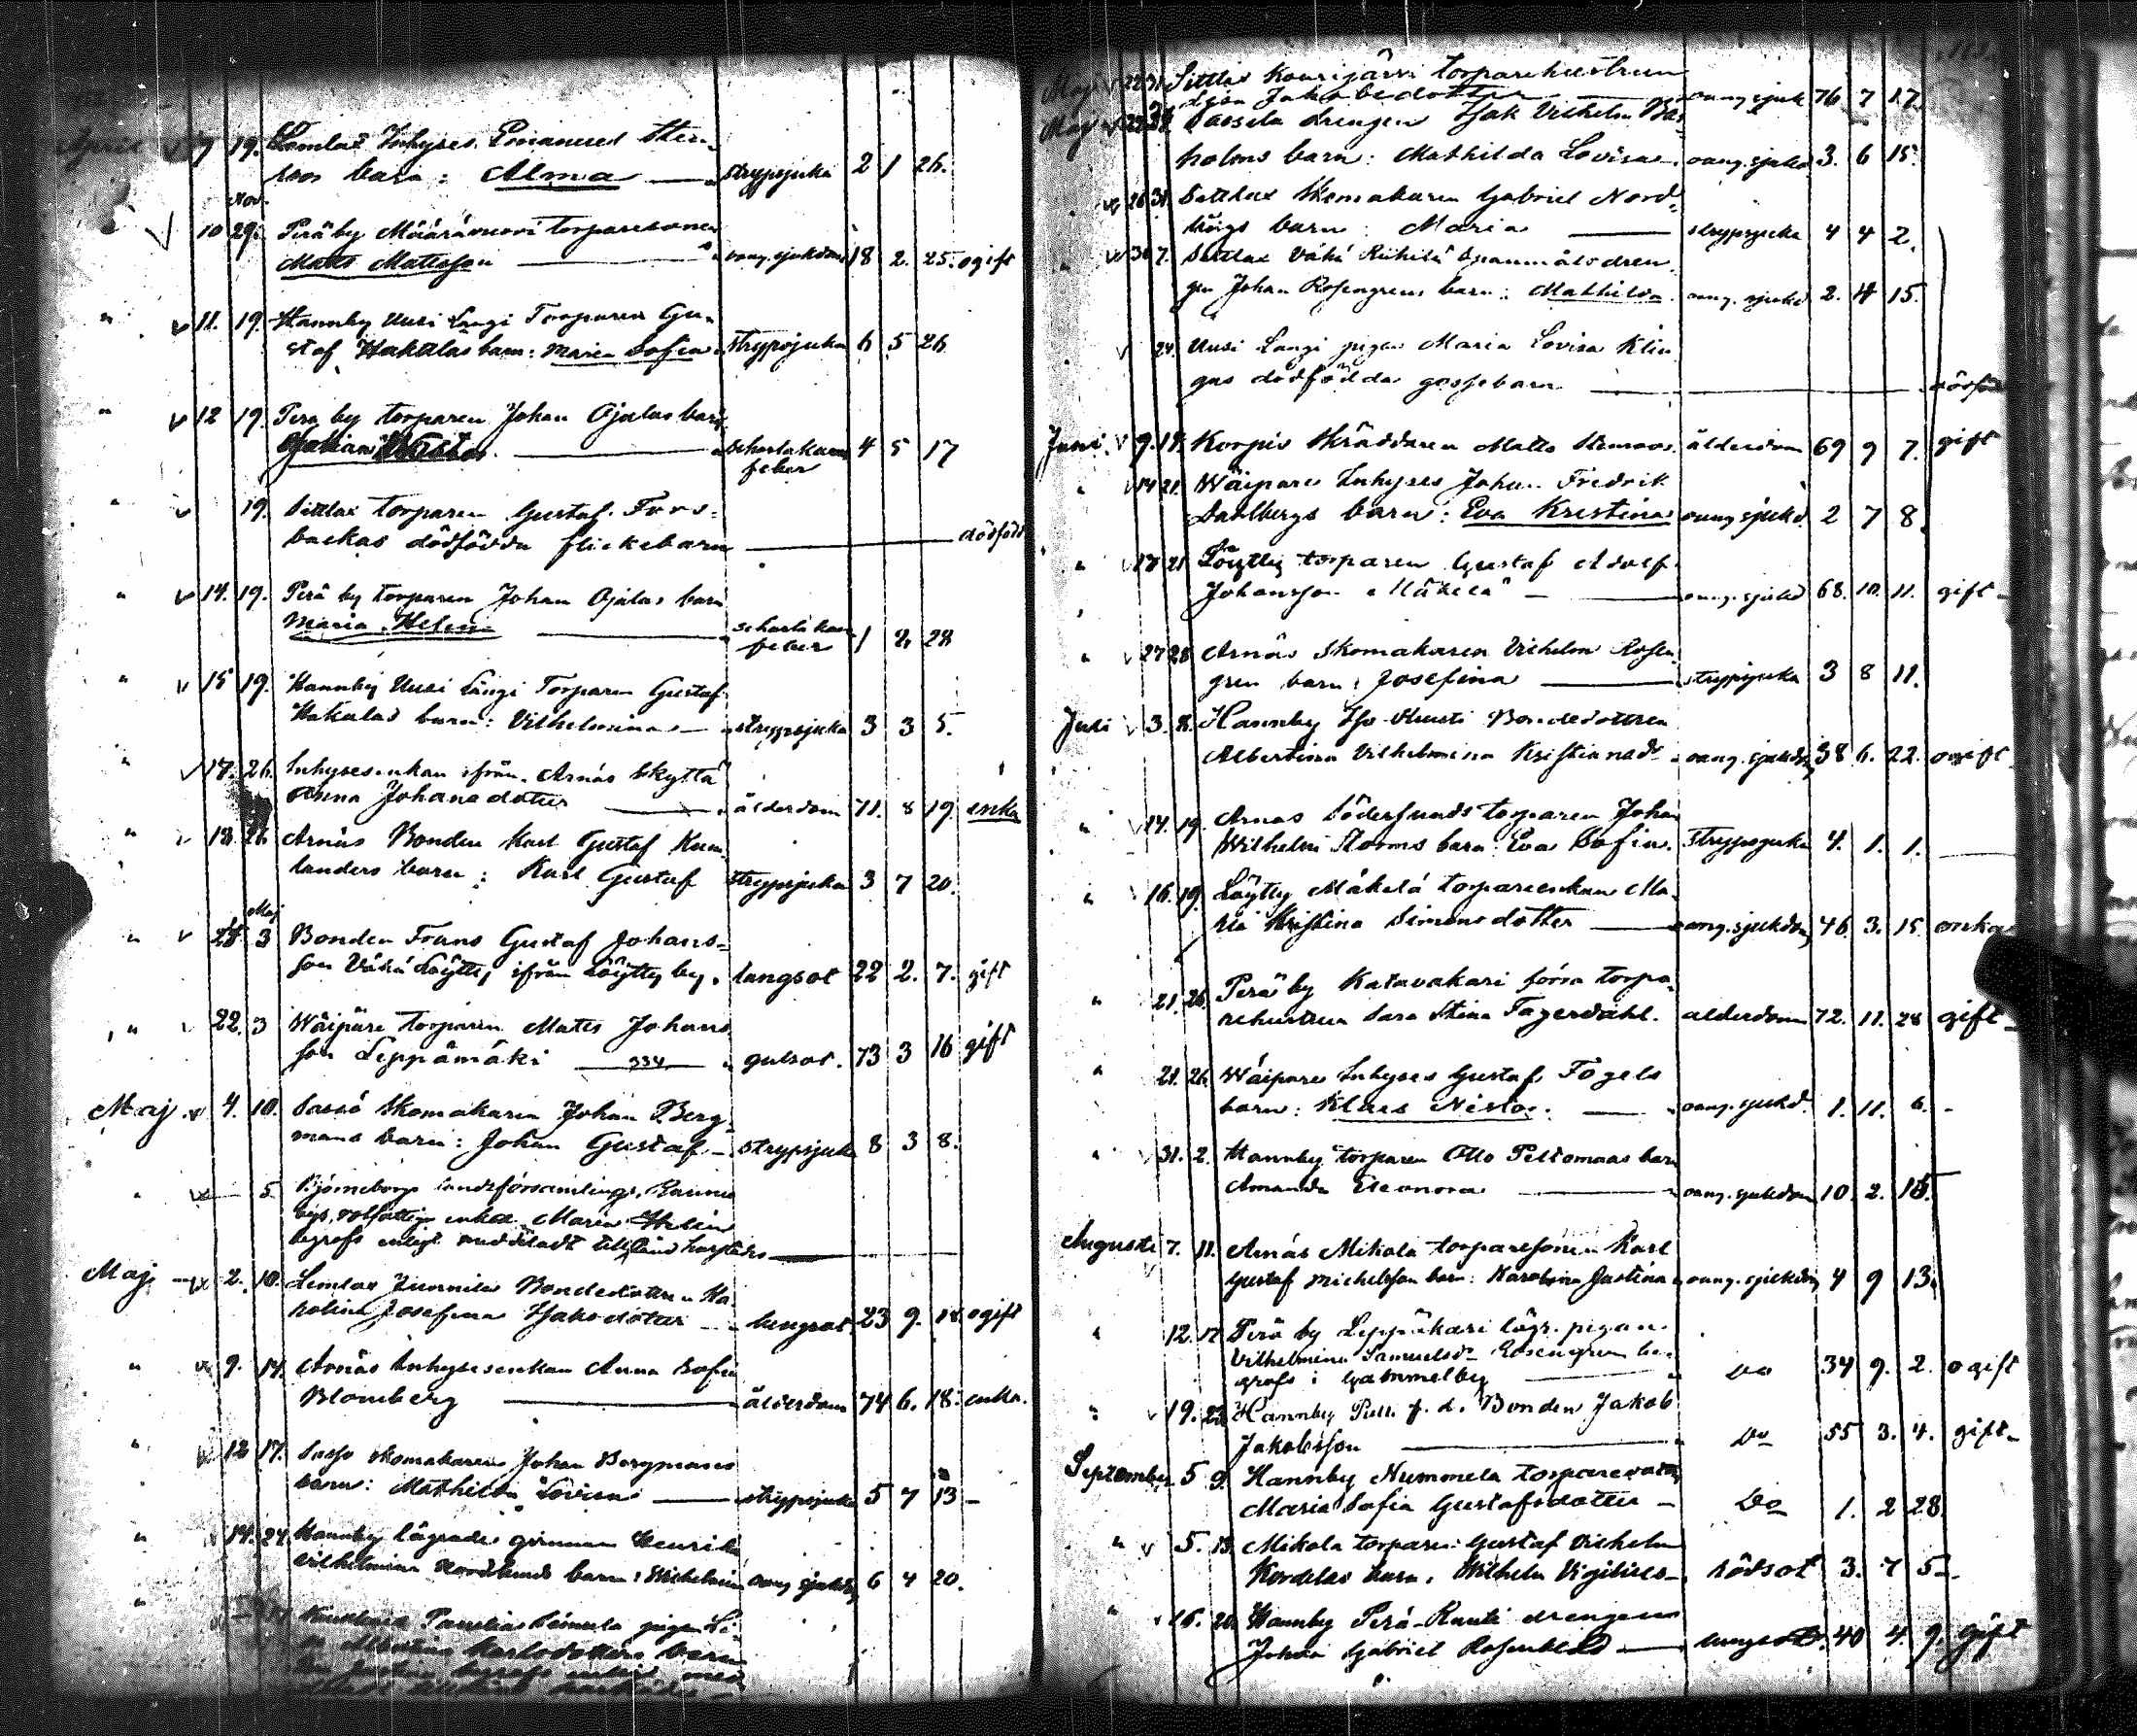 April 7 19. Lemlax Inhyses Emanuel Sten-
roos barn: Alma — strypsjuka 2 1 26.
Nov.
10 29. Peräby Määrävuori torparesonen
Matts Mattsson — oang. sjukdom 18 2. 25. ogift
" 11. 19. Hannby Uusi Längi Torparen Gu-
staf Hakalas barn: Maria Sofia strypsjuka 6 5 26
" 12 19. Perä by torparen Johan Ojalas barn
scharlakans 4 5 17
feber
" 19. Sittlax torparen Gustaf Fors-
backas dödfödda flickebarn — dödfödd
" 14. 19. Perä by torparen Johan Ojalas barn
Maria Helena — scharlakans 1 2 28
feber
" 15 19. Hannby Uusi Längi Torparen Gustaf
Hakalas barn: Vilhelmina — strypsjuka 3 3 5.
" 17. 26. Inhysesenkan ifrån Arnäs Skyttä
Anna Johansdotter — ålderdom 71. 8 19. enka
" 18. 26. Arnäs Bonden Karl Gustaf Kum-
landers barn: Karl Gustaf strypsjuka 3 7 20.
Maj
" 3 Bonden Frans Gustaf Johans-
son Vähä Löytty ifrån Löytty by. lungsot 22 2. 7. gift
" 22. 3 Wäipäre torparen Matts Johans
son Leppämäki — gulsot. 73 3 16 gift
Maj 4. 10. Sassö Skomakaren Johan Berg-
mans barn: Johan Gustaf — strypsjuka 8 3 8.
" 5. Björneborgs landsförsamlings, Raumo
bys, rotfattige enkan Maria Helin
begrofs enligt meddeladt tillstånd härstädes
Maj 2. 10. Lemlax Junnila Bondedottren Ka-
rolina Josefina Isaksdotter — lungsot 23 9. 18. ogift
" 9. 14. Arnäs Inhysesenkan Anna Sofia
Blomberg — ålderdom 74 6. 18. enka.
" 12 17. Sasso skomakaren Johan Bergmans
barn: Mathilda Lovisa — strypsjuka 5 7 13 —
" 14. 24. Hannby lägrade qvinnan Henrika
Vilhelmina Nordlunds barn: Vilhelmina oang sjukd. 6 4 20.
" pigan Li-
Albertina Karlsdotters barn
Maj 22 31. Sittlax Kourijärvi torparehustrun
Lisa Jakobsdotter — oang sjuk 76 7 17.
Maj 22 Sassela drengen Isak Vilhelm Bas-
holms barn: Mathilda Lovisa oang. sjukd 3. 6 15.
26 31. Sattlax Skomakaren Gabriel Nord-
högs barn: Maria — strypsjuka 4 4 2.
" 30 7. Sattlax Vähä Riihilä Spannmålsdren-
gen Johan Rosengrens barn: Mathilda oang. sjukd 2. 4 15.
24. Uusi Langi pigan Maria Lovisa Klin-
gas dödfödda gossebarn — dödfödd
Juni 9. 14. Korpis Skräddaren Matts Stenroos. ålderdom 69 9 7. gift
" 14 21. Wäipare Inhyses Johan Fredrik
Dahlbergs barn: Eva Kristina oang sjukd 2 7 8.
" 17 21 Löytty torparen Gustaf Adolf
Johansson Mäkelä — oang. sjukd 68. 10. 11. gift —
" 27 28 Arnäs Skomakaren Vilhelm Rosen-
gren barn: Josefina — strypsjuka 3 8 11.
Juli 3. 8. Hannby Iso-Kuusti Bondedottren
Albertina Vilhelmina Kristiansdr oang. sjukdom 38 6. 22. ogift
" 14. 19. Arnas Söderlunds torparen Johan
Wilhelm Storms barn Eva Sofia. strypsjuka 4. 1. 1. —
" 16. 19. Löytty Mäkelä torpareenkan Ma-
ria Kristina Simonsdotter — oang. sjukdom 46. 3. 15. enka
" 21. 26. Perä by Katavakari förra torpa-
rehustrun Sara Stina Fagerdahl. alderdom 72. 11. 28 gift —
" 21. 26. Wäipare Inhyses Gustaf Fogels
barn: Klaes Nestor. — oang. sjukd. 1. 11. 6. —
" 31. 2. Hannby torparen Otto Peltomaas barn
Amanda Eleonora — oang. sjukdom 10. 2. 15.
Augusti 7. 11. Arnäs Mikola torparesonen Karl
Gustaf Michelsson barn: Karolina Justina oang. sjukdom 4 9 13.
" 12. 17. Perä by Leppäkari lägr. pigan
Vilhelmina Samuelsdr Rosengren be-
grofs i Gammelby — Do 34 9. 2. ogift
" 19. 23. Hannby f. d. Bonden Jakob
Jakobsson — Do 55 3. 4. gift —
September 5 9. Hannby Nummela torparedottr
Maria Sofia Gustafsdotter — Do 1. 2 28.
" 5. 13. Mikola torparen Gustaf Vilhelm
Kordelas barn. Wilhelm Vigilius — rödsot 3. 7 5 —
" 16. 20. Hannby Perä-Runti drengen
Johan Gabriel Rosenblad — lungsot. 40 4. 9. gift